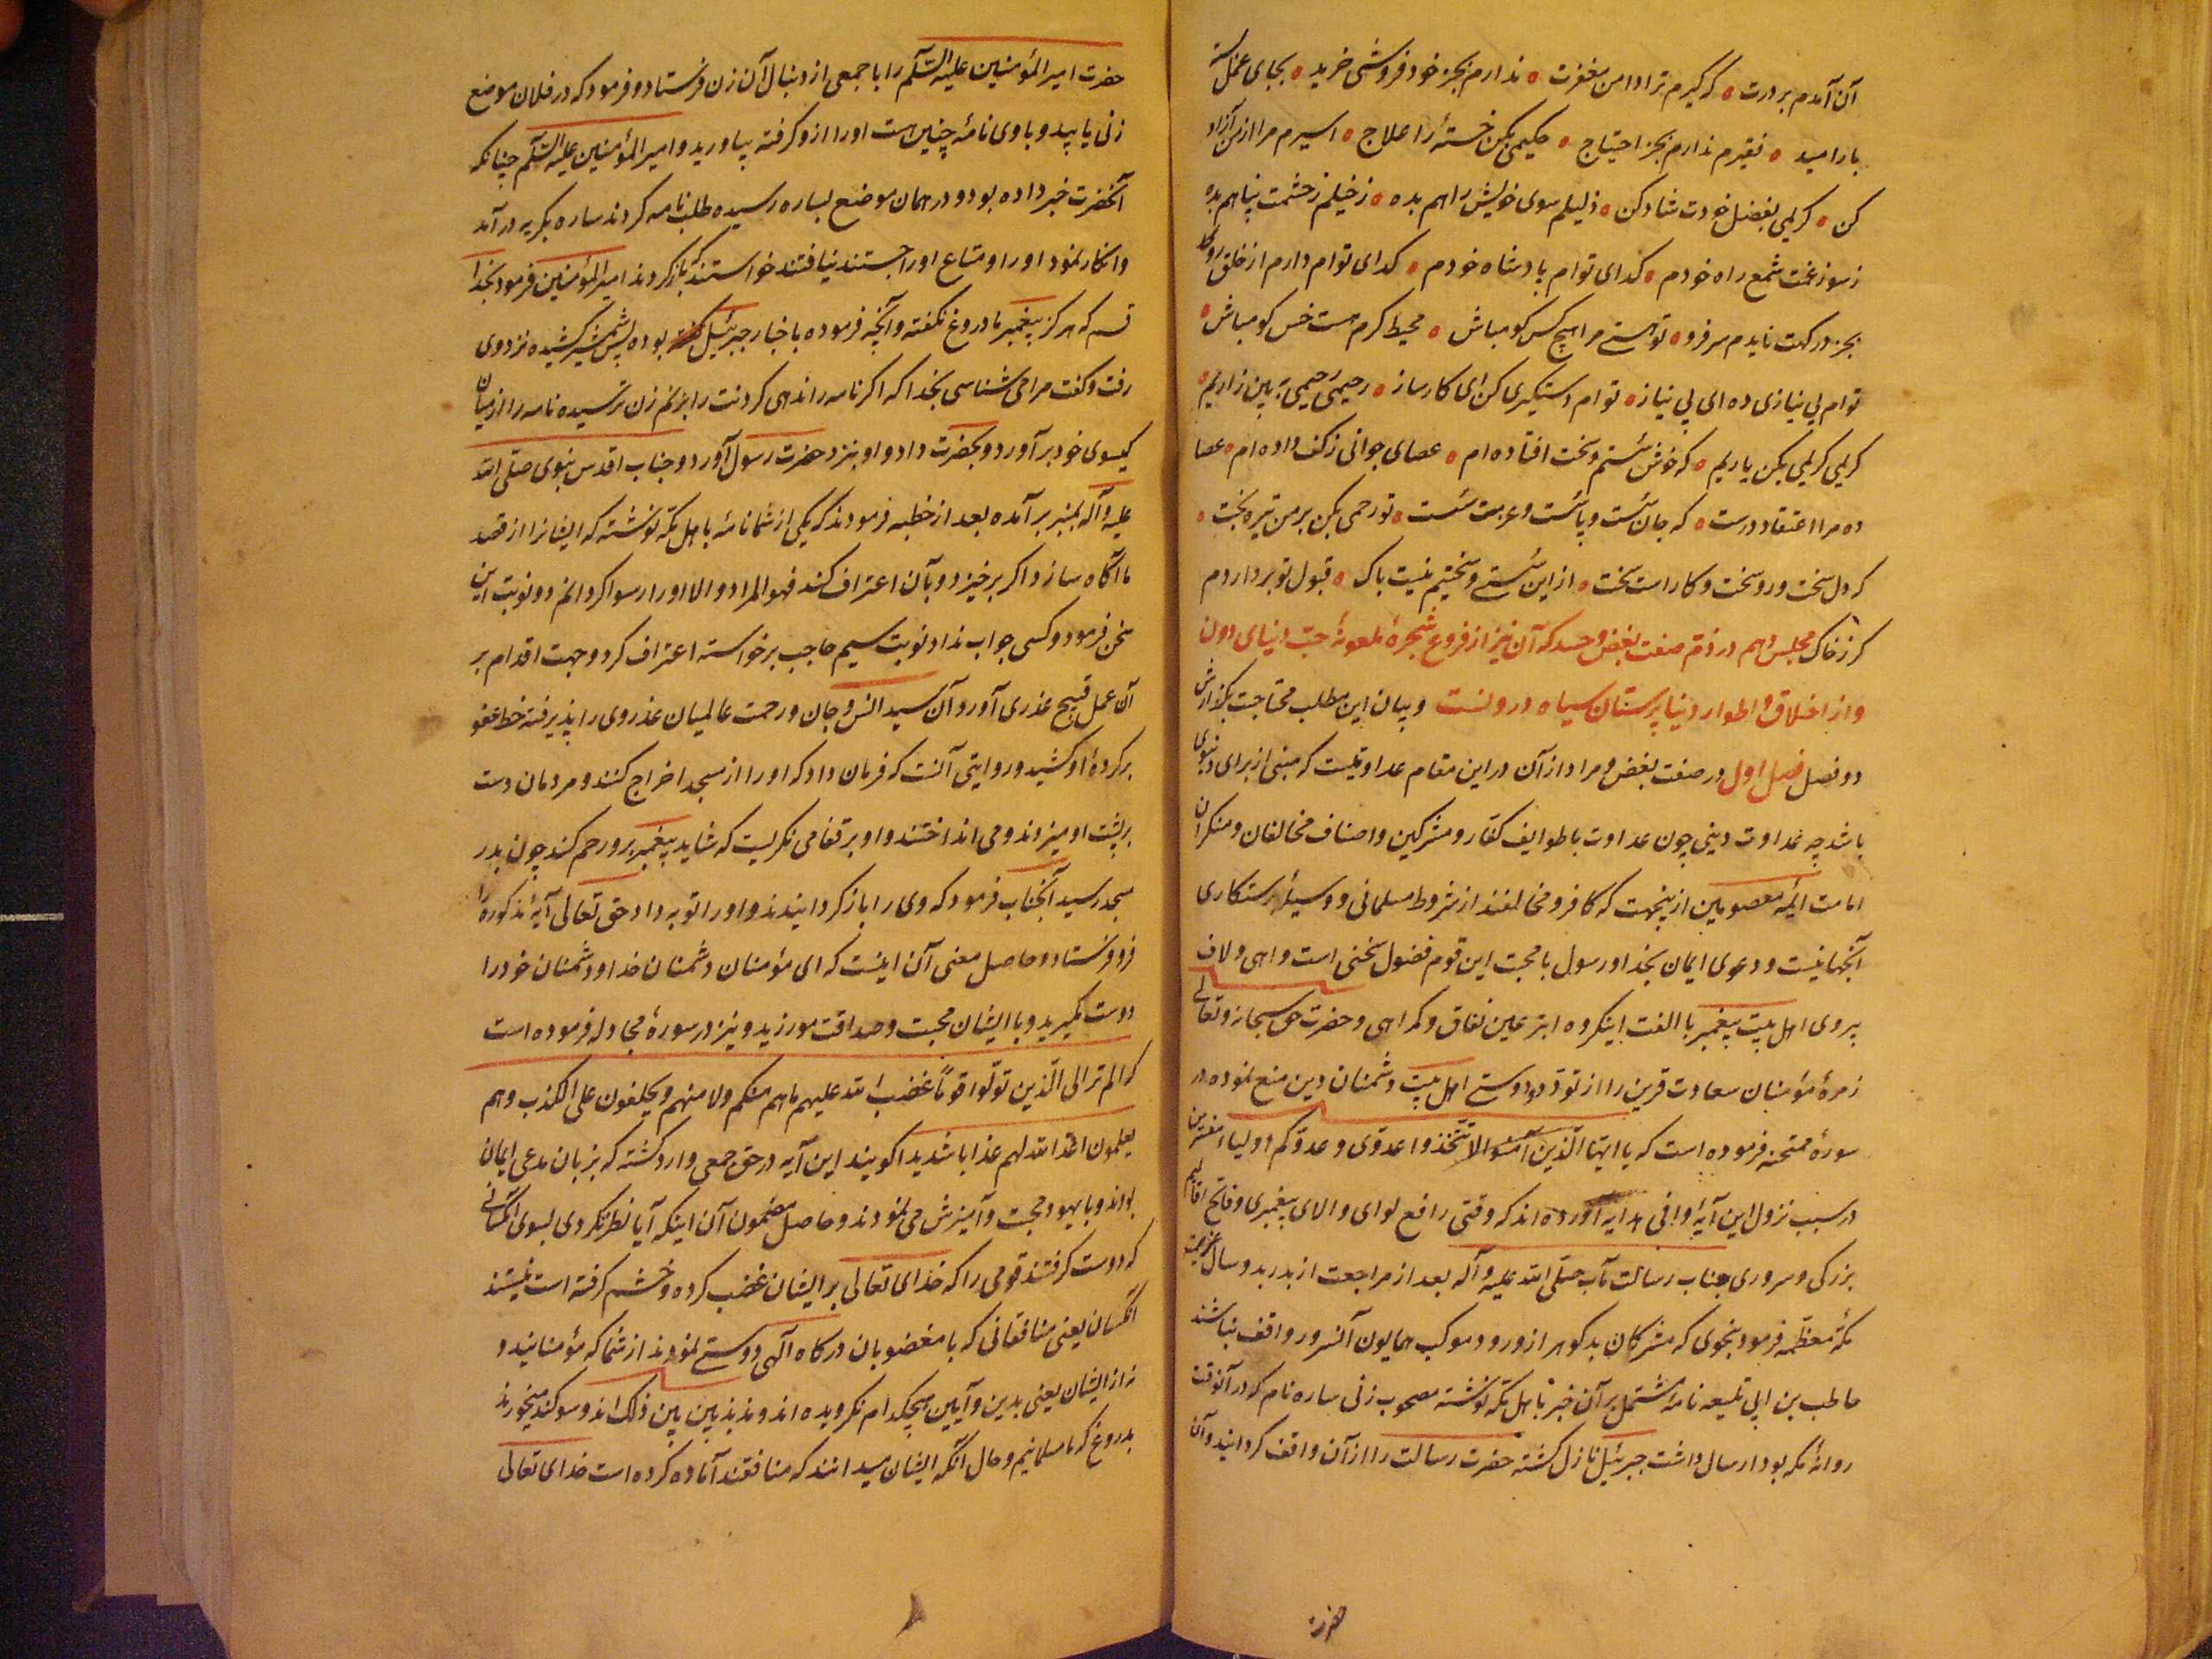 آن آمدم بر درت ۰ که گیرم ترا دامن مغفرت ۰ ندارم بجز خود فروشی خرید ۰ بجای عمل بسته
بار امید ۰ فقیرم ندارم بجز احتیاج ۰ حکیمی بکن خستهٔ را علاج ۰ اسیرم مرا از من آزاد
کن ۰ کریمی بفضل خودت شاد کن ۰ ذلیلم سوی خویش راهم بده ۰ ز خیلم ز خشمت پناهم بده
ز سوز غمت شمع راه خودم ۰ گدای توام پادشاه خودم ۰ گدای توام دارم از خلق رو
بجز درگهت نایدم سر فرو ۰ تو هستی مرا هیچ کس گو مباش ۰ محیط کرم هست خس گو مباش ۰
توام بی نیازی ده ای بی نیاز ۰ توام دستگیری کن ای کارساز ۰ رحیمی رحیمی ببین زاریم ۰
کریمی کریمی بکن یاریم ۰ که خوش سستم و سخت افتاده‌ام ۰ عصای جوانی ز کف داده‌ام ۰ عصا
ده مرا اعتقاد درست ۰ که جان سست و پا سست و عزمست سست ۰ تو رحمی بکن بر من تیره بخت ۰
که دل سخت و رو سخت و کار است سخت ۰ از این سستی و سختیم نیست باک ۰ قبول تو بردارد م
گر ز خاک مجلس دهم در ذم صفت بغض و حسد که آن نیز از فروع شجرهٔ ملعونهٔ حب دنیای دون
و از اخلاق و اطوار دنیا پرستان سیاه درونست و بیان این مطلب محتاجست بگذارش
دو فصل فصل اول در صفت بغض و مراد از آن در این مقام عداوتیست که مبنی از برای دنیوی
باشد چه عداوت دینی چون عداوت با طوایف کفار و مشرکین و اصناف مخالفان و منکران
امامت ایمهٔ معصومین از ینجهت که کافر و مخالفند از شروط مسلمانی و وسیلهٔ رستکاری
آنجهانیست و دعوی ایمان بخدا و رسول با محبت این قوم فضول سخنی است واهی و لاف
پیروی اهل بیت پیغمبر با الفت اینکروه ابتر عین نفاق و کمراهی و حضرت حق سبحانه و تعالی
زمرهٔ مؤمنان سعادت قرین را از تودد و دوستی اهل بیت دشمنان دین منع نموده در
سورهٔ ممتحنه فرموده است که یا ایها الذین آمنوا لا تتخذوا عدوی و عدوکم اولیاء مفسرین
در سبب نزول این آیهٔ وافی هدایه آورده‌اند که وقتی رافع لوای والای پیغمبری و فاتح اقالیم
بزرکی و سروری جناب رسالت مآب صلی الله علیه و آله بعد از مراجعت از بدر بدو سال عزیمت
مکهٔ معظمه فرمود بنحوی که مشرکان بد کوهر از ورود موکب همایون آنسرور واقف نباشند
حاطب بن ابی بلتعه نامهٔ مشتمل بر آن خبر باهل مکه نوشته مصحوب زنی ساره نام که در آنوقت
روانهٔ مکه بود ارسال داشت جبرئیل نازل کشته حضرت رسالت را از آن واقف کردانید و آن
حضرت امیر المؤمنین علیه السلام را با جمعی از دنبال آن زن فرستاد و فرمود که در فلان موضع
زنی یابید و با وی نامهٔ چنین است او را ازو کرفته بیاورید و امیر المؤمنین علیه السلام چنانکه
آنحضرت خبر داده بود و در همان موضع بساره رسیده طلب نامه کردند ساره بکریه در آمد
و انکار نمود او را و متاع او را جستند نیافتند خواستند که بازکردند امیر المؤمنین فرمود بخدا
قسم که هرکز پیغمبر ما دروغ نکفته و آنچه فرموده باخبار جبرئیل بوده پس شمشیر کشیده نزد وی
رفت و کفت مرا می شناسی بخدا که اکر نامه را ندهی کردنت را بزنم زن ترسیده نامه را از میان
کیسوی خود بر آورد و بحضرت داد و او بنزد حضرت رسول آورد و جناب اقدس نبوی صلی الله
علیه و آله بمنبر بر آمده بعد از خطبه فرمودند که یکی از شما نامهٔ باهل مکه نوشته که ایشانرا از قصد
ما آکاه سازد اکر برخیزد و بآن اعتراف کند فهو المراد والا او را رسوا کردانم دو نوبت این
سخن فرمود و کسی جواب نداد نوبت سیم حاجب برخواسته اعتراف کرد و جهت اقدام بر
آن عمل قبیح عذری آورد و آن سید انس و جان و رحمت عالمیان عذر وی را پذیرفته خط عفو
بر کردهٔ او کشید و روایتی آنست که فرمان داد که او را از مسجد اخراج کنند و مردمان دست
بر پشت او میزدند و می انداختند و او بر قفا می نکریست که شاید پیغمبر برو رحم کند چون بدر
مسجد رسید آنجناب فرمود که وی را بازکردانیدند و او را توبه داد حق تعالی آیهٔ مذکوره را
فرو فرستاد و حاصل معنی آن اینست که ای مؤمنان دشمنان خدا و دشمنان خود را
دوست نگیرید و با ایشان محبت و صداقت مورزید و نیز در سورهٔ مجادله فرموده است
که الم تر الی الذین تولوا قوماً غضب الله علیهم ما هم منکم ولا منهم و یحلفون علی الکذب و هم
یعلمون اعد الله لهم عذابا شدیدا کویند این آیه در حق جمعی وارد کشته که بزبان مدعی ایمان
بودند و با یهود محبت و آمیزش می نمودند و حاصل مضمون آن اینکه آیا نظر نکردی بسوی آنکسانی
که دوست کرفتند قومی را که خدای تعالی بر ایشان غضب کرده و خشم کرفته است نیستند
آنکسان یعنی منافقانی که با مغضوبان درکاه آلهی دوستی نمودند از شما که مؤمنانید و
نه از ایشان یعنی بدین و آیین هیچکدام نکرویده‌اند و مذبذبین بین ذلک‌اند و سوکند میخورند
بدروغ که ما مسلمانیم و حال آنکه ایشان میدانند که منافقند آماده کرده است خدای تعالی